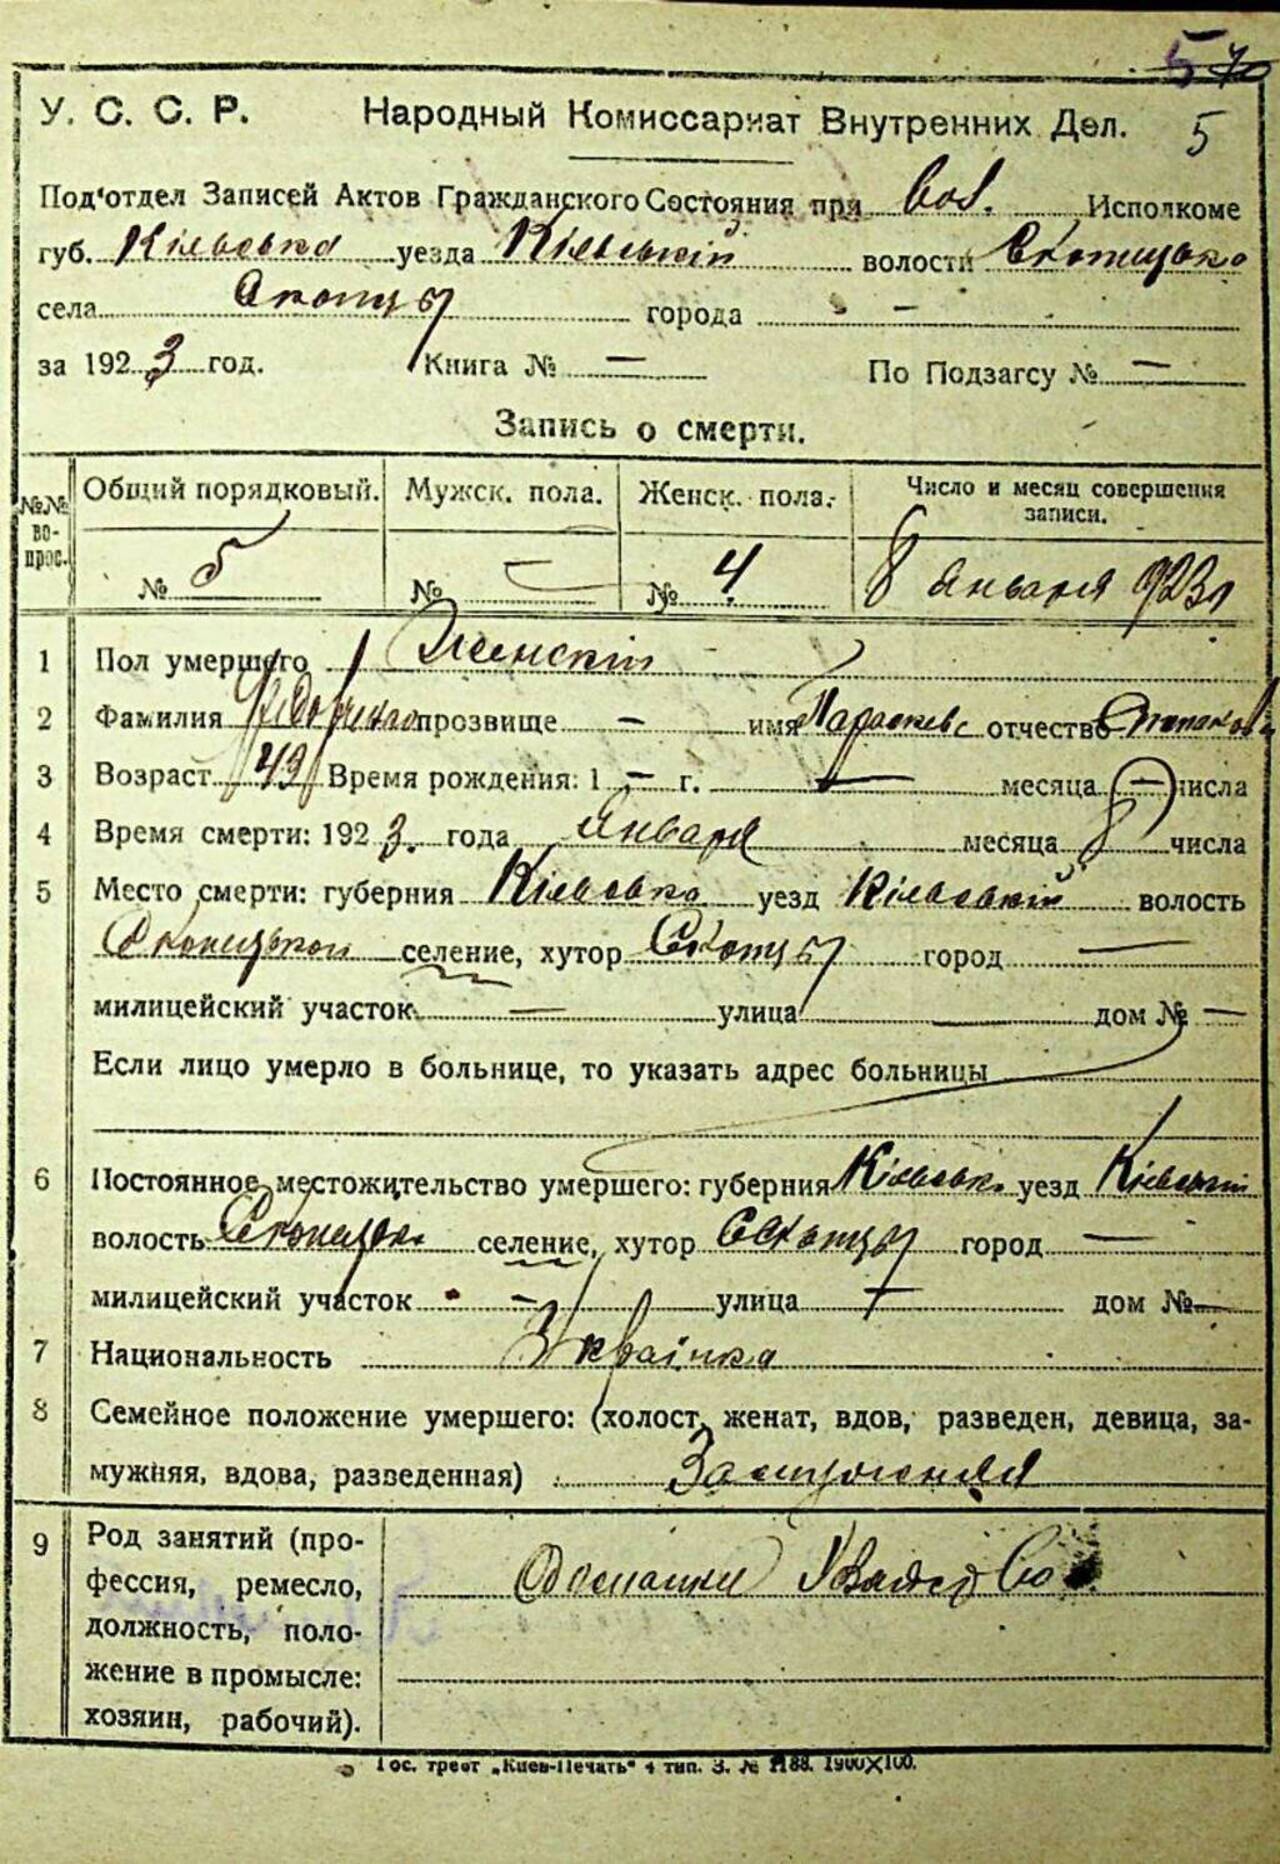 5
У. С. С. Р. Народный Комиссариат Внутренних Дел. 5
Под'отдел Записей Актов Гражданского Состояния при Вол. Исполкоме
губ. Кіевська уезда Кіевській волости
села Скотцы города —
за 1923 год. Книга № — По Подзагсу № —
Запись о смерти.
№№ вопрос. Общий порядковый. Мужск. пола. Женск. пола. Число и месяц совершения записи.
№ 5 № — № 4 8 Января 923 г
1 Пол умершего Женскій
2 Фамилия прозвище — имя Параскева отчество
3 Возраст 49 Время рождения: 1 — г. — месяца — числа
4 Время смерти: 1923. года Января месяца 8 числа
5 Место смерти: губерния Кіевська уезд Кіевській волость
селение, хутор Скотцы город —
милицейский участок — улица дом № —
Если лицо умерло в больнице, то указать адрес больницы
6 Постоянное местожительство умершего: губерния Кіевськ. уезд Кіевській
волость селение, хутор Скотцы город —
милицейский участок — улица — дом № —
7 Национальность Украінка
8 Семейное положение умершего: (холост, женат, вдов, разведен, девица, за-
мужняя, вдова, разведенная) Замужняя
9 Род занятий (про-
фессия, ремесло,
должность, поло-
жение в промысле:
хозяин, рабочий).
Гос. трест „Киев-Печать" 4 тип. З. № 1188. 1900×100.